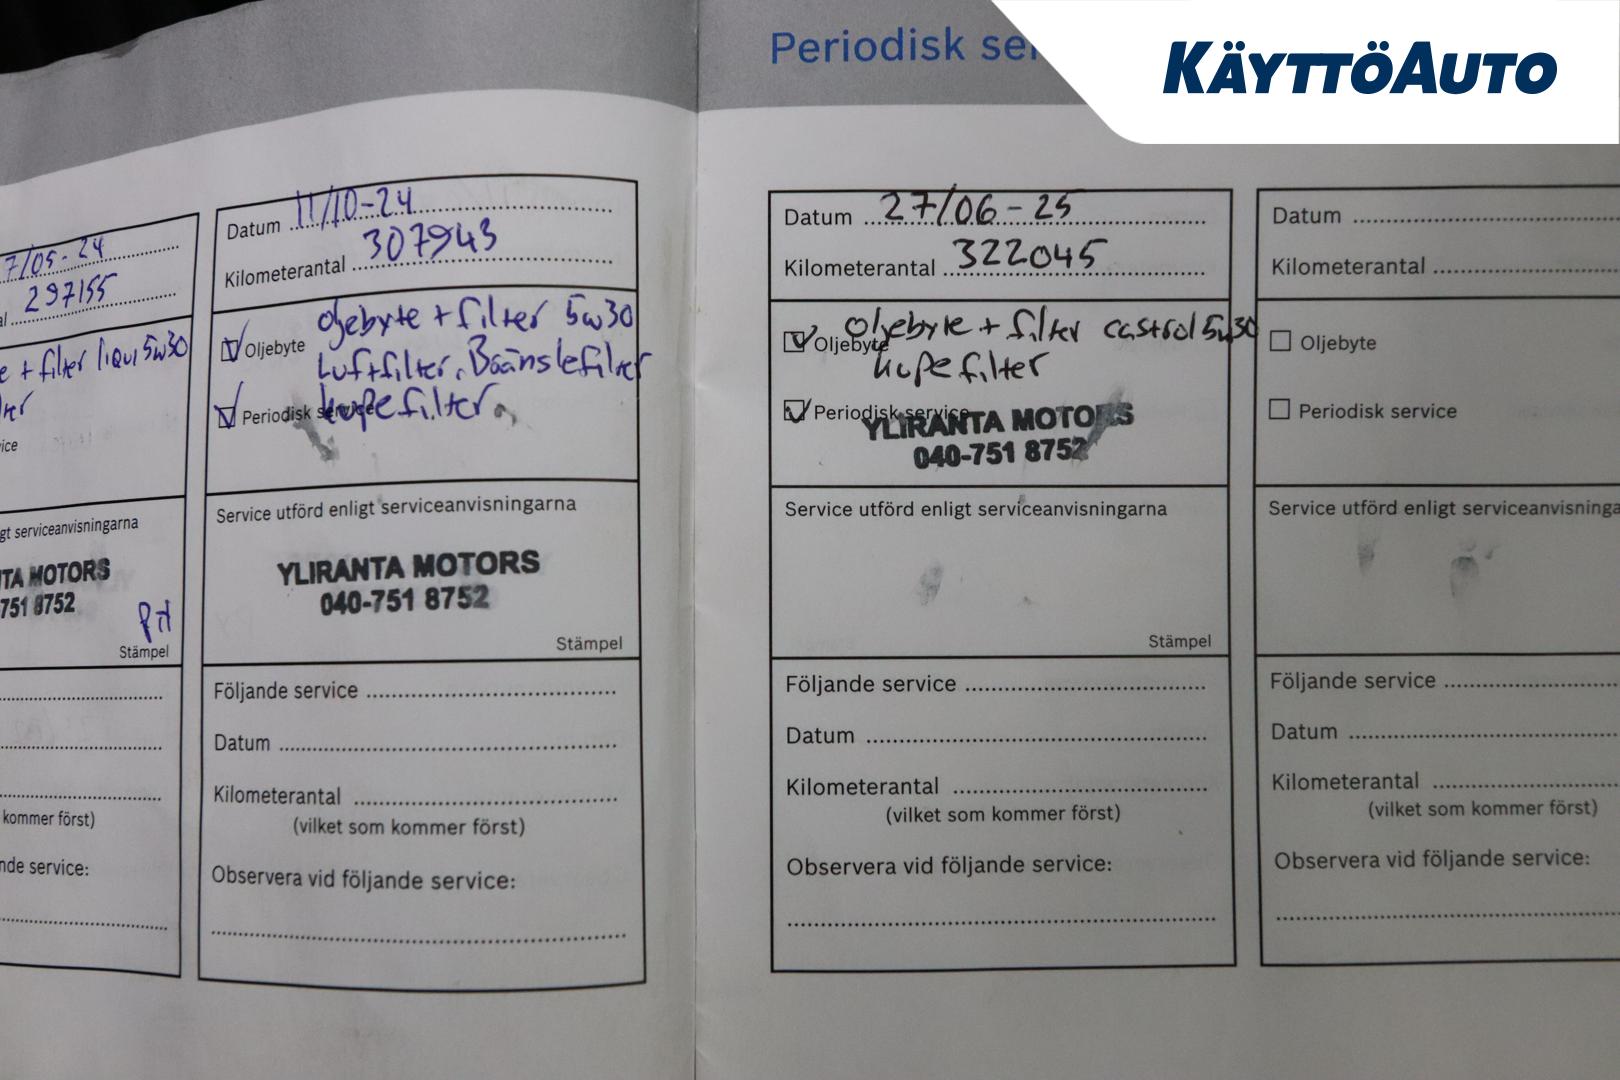 Periodisk
KÄYTTÖAUTO
7/05-24
297155
+ filter liqui 5w30
gt serviceanvisningarna
TA MOTORS
751 8752
Stämpel
kommer först)
nde service:
Datum 11/10-24
Kilometerantal 307943
oljebyte + filter 5w30
Oljebyte
Luftfilter, Bräänslefilter
Periodisk service
kupefilter
Service utförd enligt serviceanvisningarna
YLIRANTA MOTORS
040-751 8752
Stämpel
Följande service
Datum
Kilometerantal
(vilket som kommer först)
Observera vid följande service:
Datum 27/06-25
Kilometerantal 322045
oljebyte + filter castrol 5w30
Oljebyte
kupefilter
Periodisk service
YLIRANTA MOTORS
040-751 8752
Service utförd enligt serviceanvisningarna
Stämpel
Följande service
Datum
Kilometerantal
(vilket som kommer först)
Observera vid följande service:
Datum
Kilometerantal
Oljebyte
Periodisk service
Service utförd enligt serviceanvisninga
Följande service
Datum
Kilometerantal
(vilket som kommer först)
Observera vid följande service: